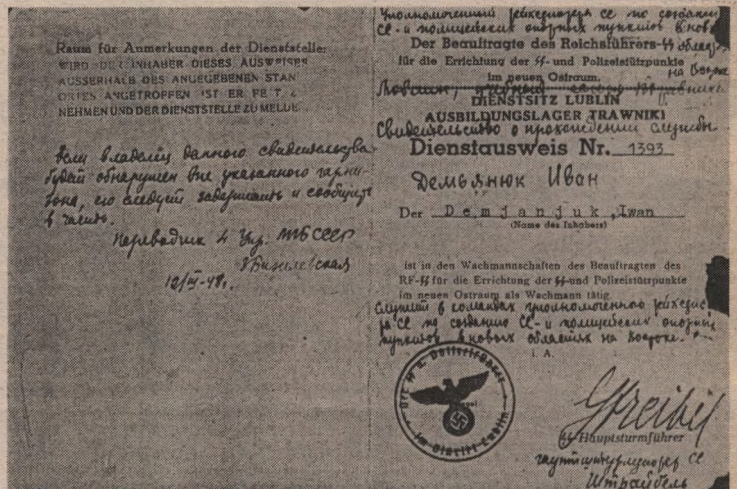 Raum für Anmerkungen der Dienststelle:
WIRD DER INHABER DIESES AUSWEISES
AUSSERHALB DES ANGEGEBENEN STAN
ORTES ANGETROFFEN IST ER FEST Z
NEHMEN UND DER DIENSTSTELLE ZU MELDE
Если владелец данного свидетельства
будет обнаружен вне указанного гарни-
зона, его следует задержать и сообщить
в часть.
Переводчик 4 Упр. МГБ СССР
12/III-48г.
Уполномоченный рейхсфюрера СС по созданию
СС- и полицейских опорных пунктов в новых
Der Beauftragte des Reichsführers-SS областях
für die Errichtung der SS- und Polizeistützpunkte
на Востоке
im neuen Ostraum.
Люблин, учебный лагерь Травники
DIENSTSITZ LUBLIN
AUSBILDUNGSLAGER TRAWNIKI
Свидетельство о прохождении службы
Dienstausweis Nr. 1393
Демьянюк Иван
Der Demjanjuk, Iwan
(Name des Inhabers)
ist in den Wachmannschaften des Beauftragten des
RF-SS für die Errichtung der SS-und Polizeistützpunkte
im neuen Ostraum als Wachmann tätig.
Служит в командах уполномоченного рейхсфюре-
ра СС по созданию СС- и полицейских опорных
пунктов в новых областях на Востоке.
i. A.
Der SS u. Polizeiführer
im Distrikt Lublin
Streibel
SS-Hauptsturmführer
гауптштурмфюрер СС
Штрайбель